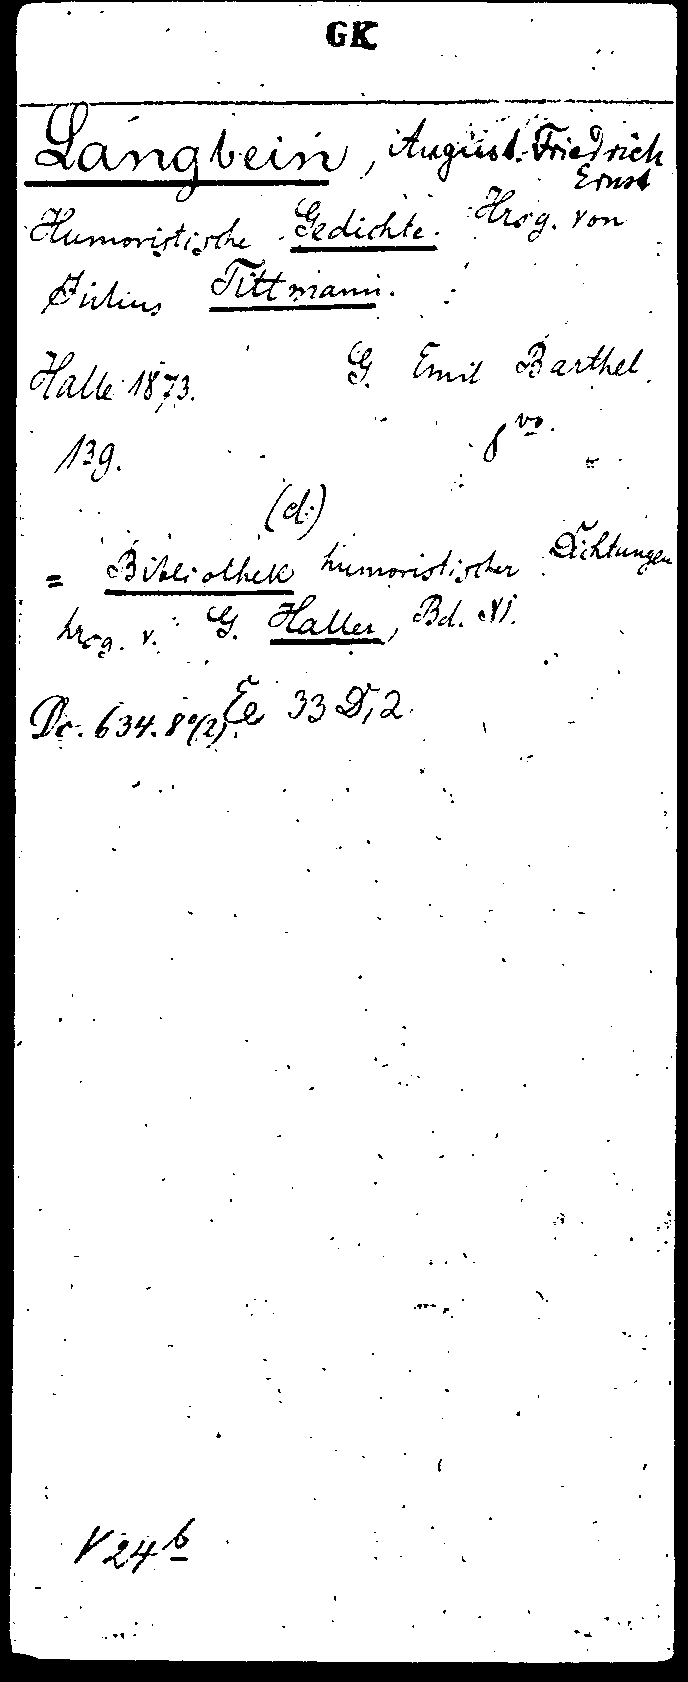 GK
Langbein, August Friedrich
Ernst
Humoristische Gedichte. Hrsg. von
Julius Tittmann.
Halle 1873. G. Emil Barthel.
139. 8vo.
(d.)
= Bibliothek humoristischer Dichtungen
hrsg. v. G. Haller, Bd. XI.
Dc. 634. 8°(2). Ee 33 D,2.
V 24 b